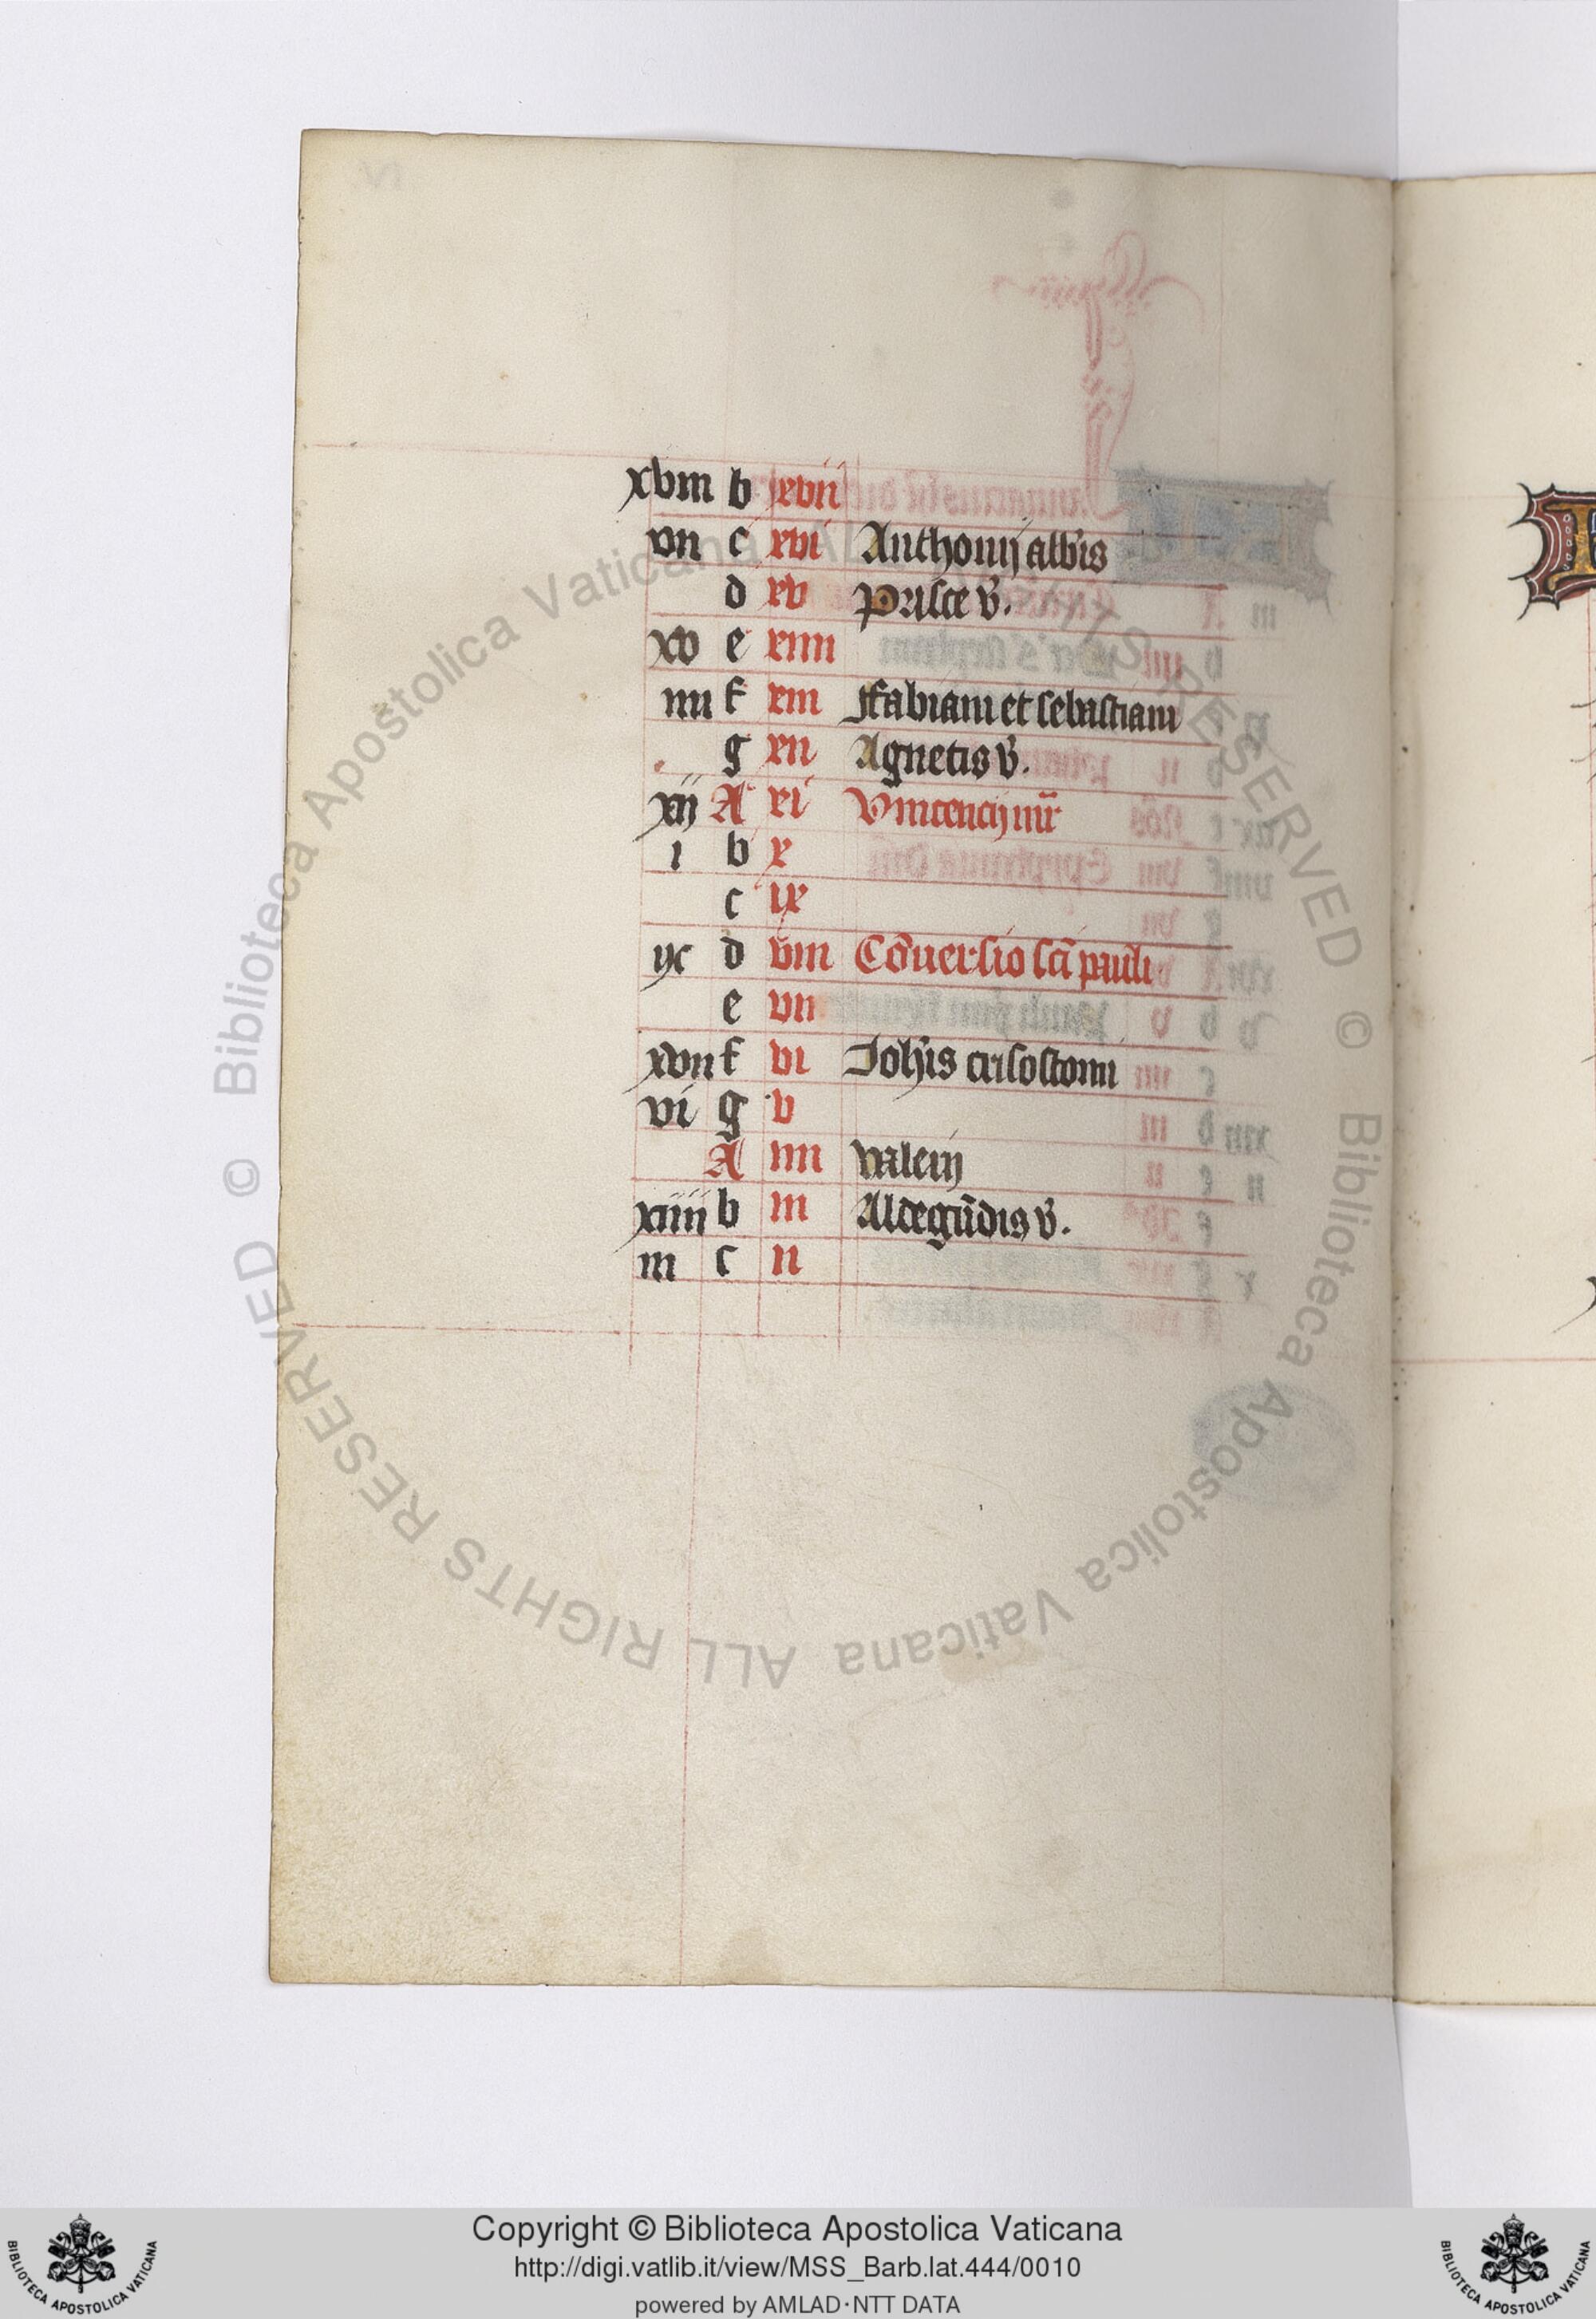 xviii b xvii
vii c xvi Anthonij abb̄is
d xv Prisce v̄.
xv e xiiii
iiii f xiii Ffabiani et sebastiani
g xii Agnetis v̄.
xij A xi Vincencij mr̄
i b x
c ix
ix d viii Cōuersio sc̄i pauli
e vii
xvii f vi Joh̄is crisostomi
vi g v
A iiii valerij
xiiii b iii Aldegūdis v̄.
iii c ii
© Biblioteca Apostolica Vaticana ALL RIGHTS RESERVED © Biblioteca Apostolica Vaticana ALL RIGHTS RESERVED
Copyright © Biblioteca Apostolica Vaticana
http://digi.vatlib.it/view/MSS_Barb.lat.444/0010
powered by AMLAD·NTT DATA
BIBLIOTECA APOSTOLICA VATICANA
BIBLIOTECA APOSTOLICA VATICANA